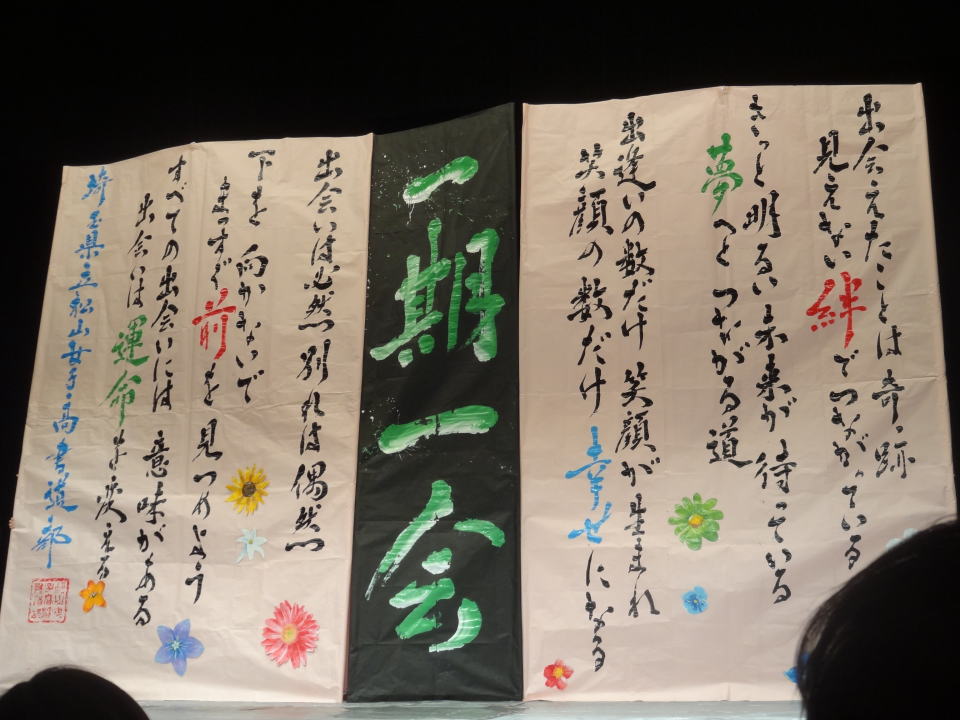 出会えたことは奇跡
見えない絆でつながっている
きっと明るい未来が待っている
夢へとつながる道
出逢いの数だけ笑顔が生まれ
笑顔の数だけ幸せになる
一期一会
出会いは必然別れは偶然
下を向かないで
まっすぐ前を見つめよう
すべての出会いには意味がある
出会いは運命を変える
埼玉県立松山女子高書道部